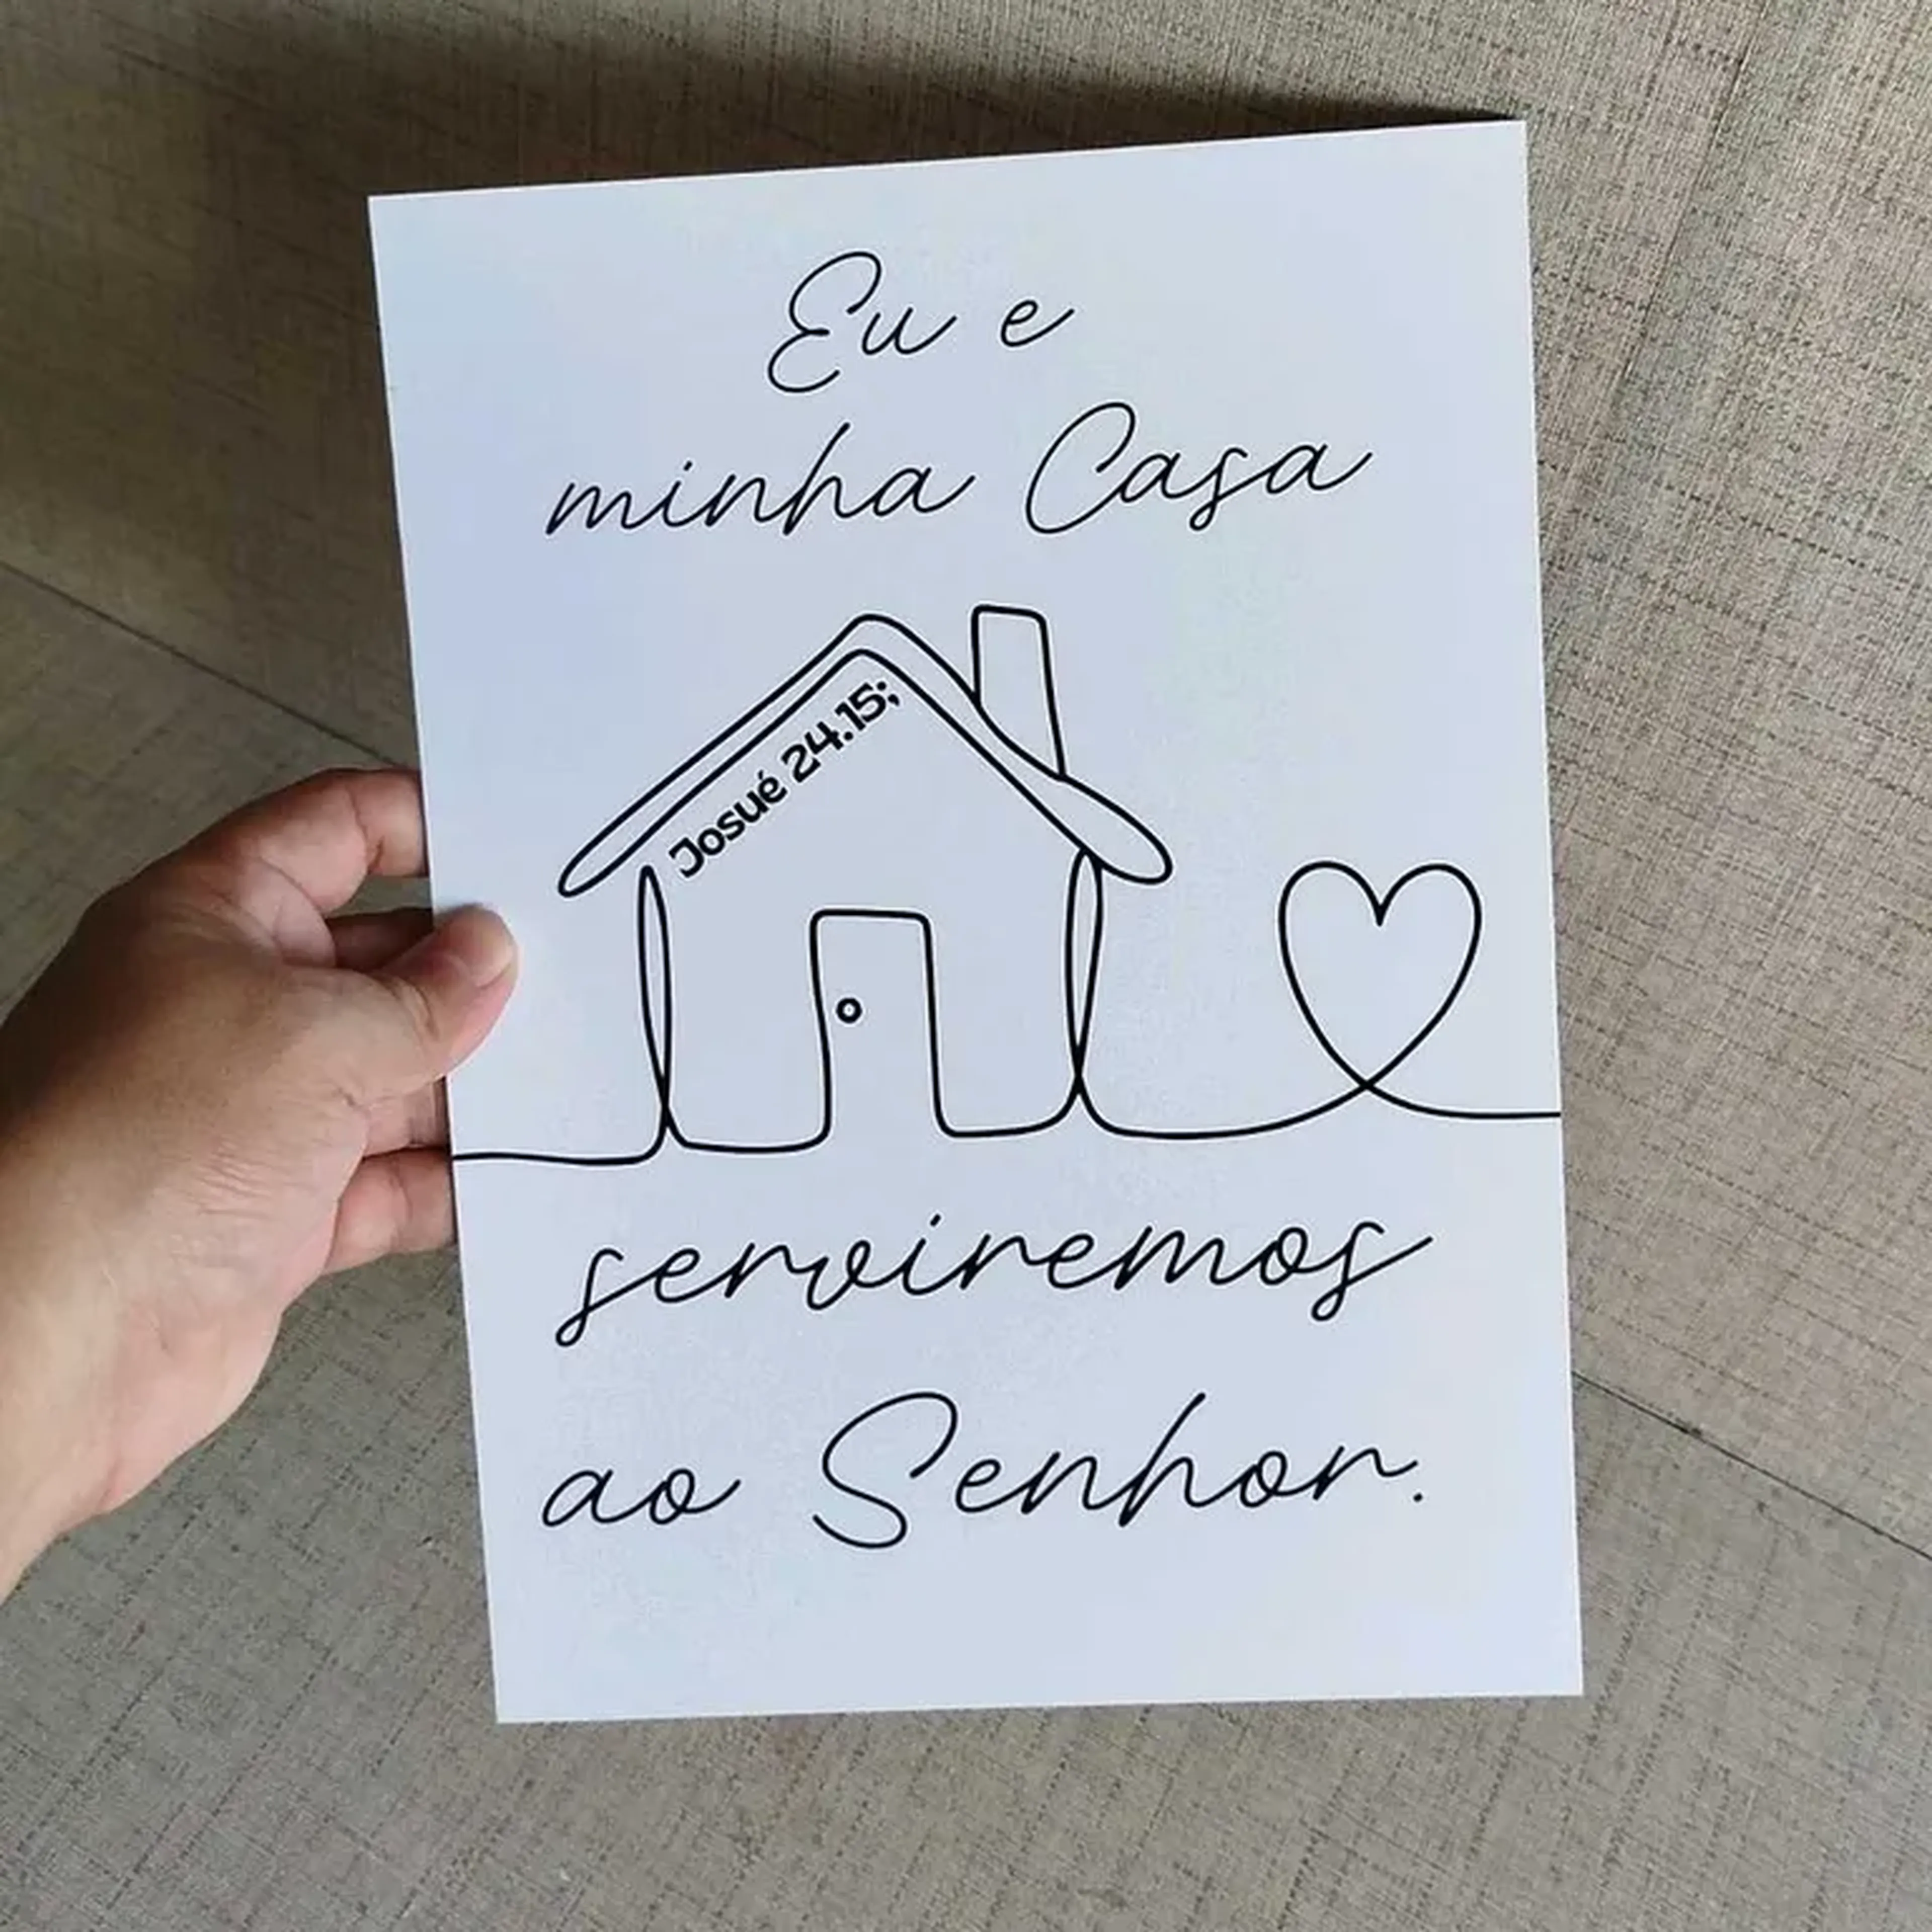 Eu e
minha Casa
Josué 24.15;
serviremos
ao Senhor.